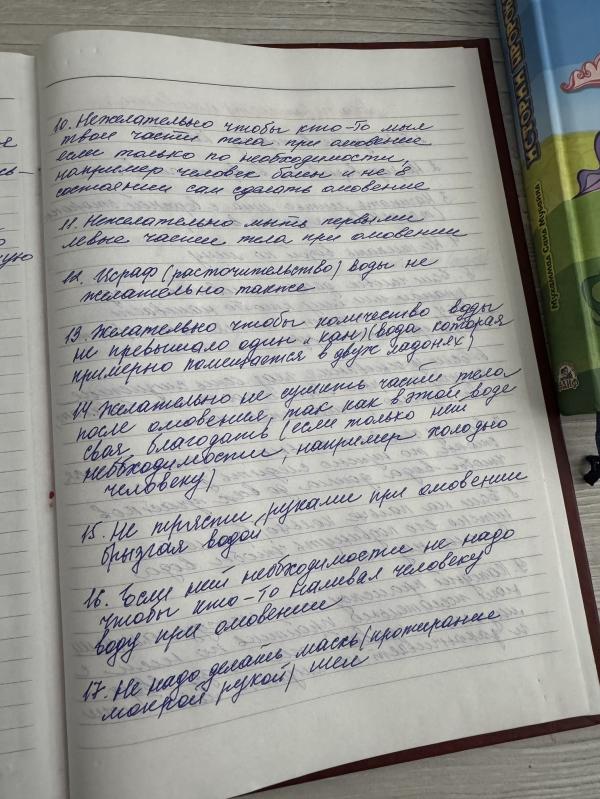 10. Нежелательно чтобы кто-то мыл
твои части тела при омовении
если только по необходимости,
например человек болен и не в
состоянии сам сделать омовение
11. Нежелательно мыть первыми
левые части тела при омовении
12. Исраф (расточительство) воды не
желательно также
13. Желательно чтобы количество воды
не превышало один "кан" (вода которая
примерно помещается в двух ладонях)
14. Желательно не сушить части тела
после омовения, так как в этой воде
своя благодать (если только нет
необходимости, например холодно
человеку)
15. Не трясти руками при омовении
брызгая водой
16. Если нет необходимости не надо
чтобы кто-то наливал человеку
воду при омовении
17. Не надо делать масхь (протирание
мокрой рукой) шеи
ИСТОРИИ ПРОРОКОВ
Мухаммад Саид Мубайид